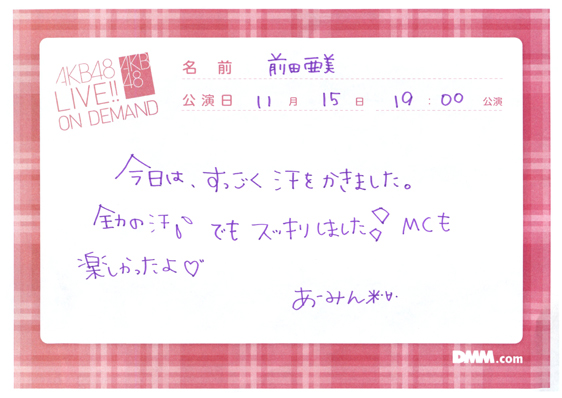 AKB48
LIVE!!
ON DEMAND
AKB
48
名 前 前田亜美
公演日 11月 15日 19:00 公演
今日は、すっごく汗をかきました。
全力の汗 でもスッキリしました MCも
楽しかったよ♡
あーみん
DMM.com